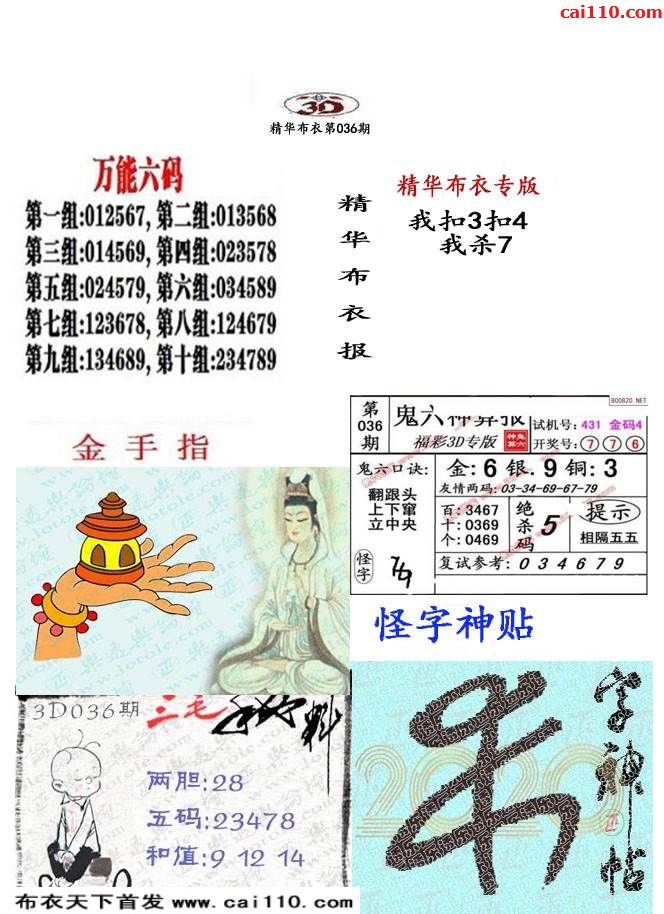 cai110.com
3D
精华布衣第036期
万能六码
第一组:012567, 第二组:013568
第三组:014569, 第四组:023578
第五组:024579, 第六组:034589
第七组:123678, 第八组:124679
第九组:134689, 第十组:234789
精华布衣报
精华布衣专版
我扣3扣4
我杀7
金手指
第036期
鬼六神算报
福彩3D专版
神鬼算六
B00820.NET
试机号: 431 金码4
开奖号: 7 7 6
鬼六口诀:
翻跟头
上下窜
立中央
金: 6 银. 9 铜: 3
友情两码: 03-34-69-67-79
百: 3467
十: 0369
个: 0469
绝杀码 5
提示
相隔五五
怪字
复试参考: 034679
怪字神贴
字神帖
2020
3D036期
三毛
料
两胆:28
五码:23478
和值:9 12 14
布衣天下首发 www.cai110.com